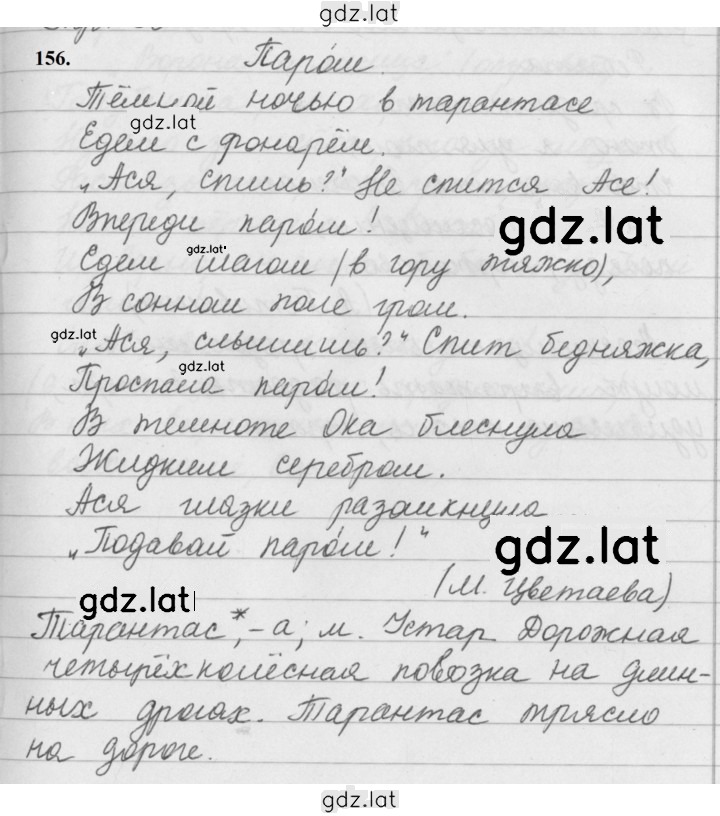 gdz.lat
156. Паро́м.
Тёмной ночью в тарантасе
gdz.lat
Едем с фонарём.
„Ася, спишь?" Не спится Асе!
Впереди паро́м!
gdz.lat
gdz.lat
Едем шагом (в гору тяжко),
В сонном поле гром.
gdz.lat
„Ася, слышишь?" Спит бедняжка,
gdz.lat
Проспала паро́м!
В темноте Ока блеснула
Жидким серебром.
Ася глазки разомкнула
„Подавай паро́м!"
gdz.lat
(М. Цветаева)
gdz.lat
Тарантас*, -а; м. Устар. Дорожная
четырёхколёсная повозка на длин-
ных дрогах. Тарантас трясло
на дороге.
gdz.lat